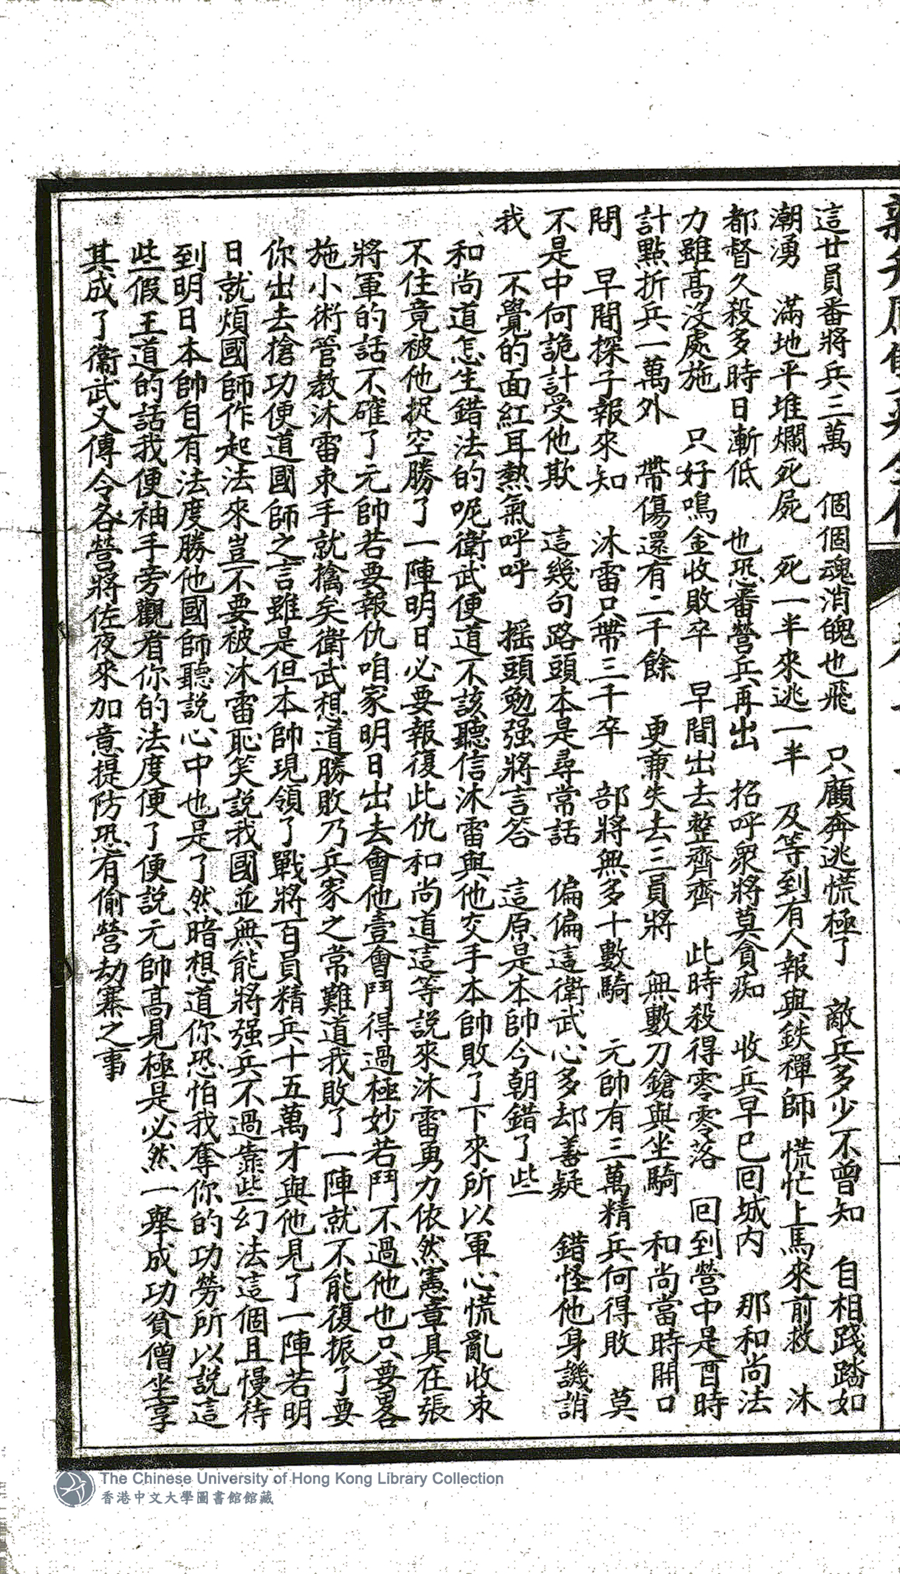 這廿員番將兵三萬　個個魂消魄也飛　只顧奔逃慌極了　敵兵多少不曾知　自相踐踏如
潮湧　滿地平堆爛死屍　死一半來逃一半　及等到有人報與鉄禪師　慌忙上馬來前救　沐
都督久殺多時日漸低　也恐番營兵再出　招呼眾將莫貪痴　收兵早已回城內　那和尚法
力雖高沒處施　只好鳴金收敗卒　早間出去整齊齊　此時殺得零零落　回到營中是酉時
計點折兵一萬外　帶傷還有二千餘　更兼失去三員將　無數刀鎗與坐騎　和尚當時開口
問　早間探子報來知　沐雷只帶三千卒　部將無多十數騎　元帥有三萬精兵何得敗　莫
不是中何詭計受他欺　這幾句路頭本是尋常話　偏偏這衛武心多却善疑　錯怪他身譏誚
我　不覺的面紅耳熱氣呼呼　摇頭勉强將言答　這原是本帥今朝錯了些
和尚道怎生錯法的呢衛武便道不該聽信沐雷與他交手本帥敗了下來所以軍心慌亂收朿
不住竟被他捉空勝了一陣明日必要報復此仇和尚道這等說來沐雷勇力依然憲章具在張
將軍的話不確了元帥若要報仇咱家明日出去會他壹會鬥得過極妙若鬥不過他也只要畧
施小術管教沐雷朿手就擒矣衛武想道勝敗乃兵家之常難道我敗了一陣就不能復振了要
你出去搶功便道國師之言雖是但本帥現領了戰將百員精兵十五萬才與他見了一陣若明
日就煩國師作起法來豈不要被沐雷恥笑說我國並無能將强兵不過靠些幻法這個且慢待
到明日本帥自有法度勝他國師聽説心中也是了然暗想道你恐怕我奪你的功勞所以說這
些假王道的話我便袖手旁觀看你的法度便了便說元帥高見極是必然一舉成功貧僧坐享
其成了衛武又傳令各營將佐夜來加意提防恐有偷營劫寨之事
The Chinese University of Hong Kong Library Collection
香港中文大學圖書館館藏